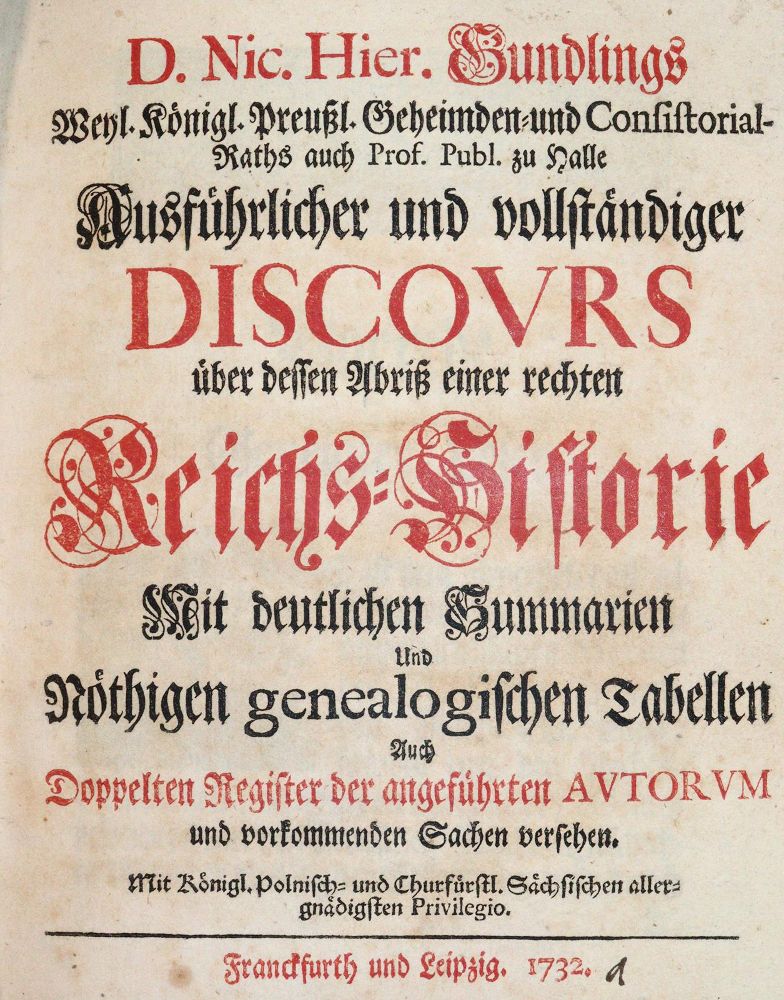 D. Nic. Hier. Gundlings
Weyl. Königl. Preußl. Geheimden-und Consistorial-
Raths auch Prof. Publ. zu Halle
Ausführlicher und vollständiger
DISCOVRS
über dessen Abriß einer rechten
Reichs-Historie
Mit deutlichen Summarien
Und
Nöthigen genealogischen Tabellen
Auch
Doppelten Register der angeführten AVTORVM
und vorkommenden Sachen versehen.
Mit Königl. Polnisch- und Churfürstl. Sächsischen aller-
gnädigsten Privilegio.
Franckfurth und Leipzig. 1732.